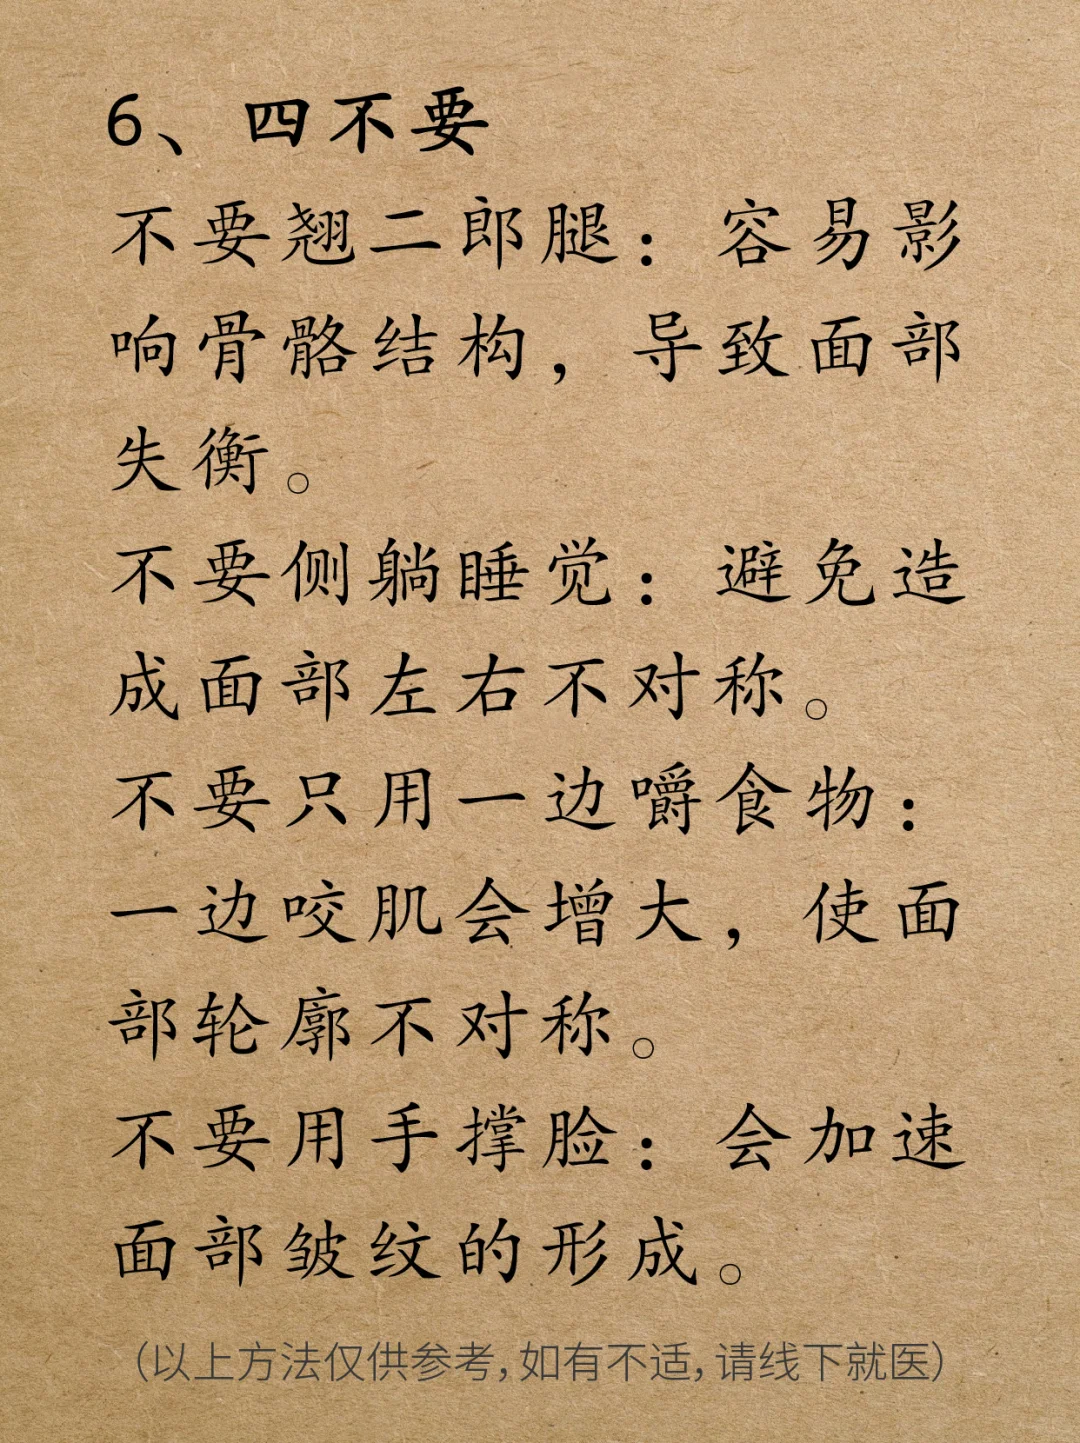 6、四不要
不要翘二郎腿：容易影
响骨骼结构，导致面部
失衡。
不要侧躺睡觉：避免造
成面部左右不对称。
不要只用一边嚼食物：
一边咬肌会增大，使面
部轮廓不对称。
不要用手撑脸：会加速
面部皱纹的形成。
（以上方法仅供参考，如有不适，请线下就医）